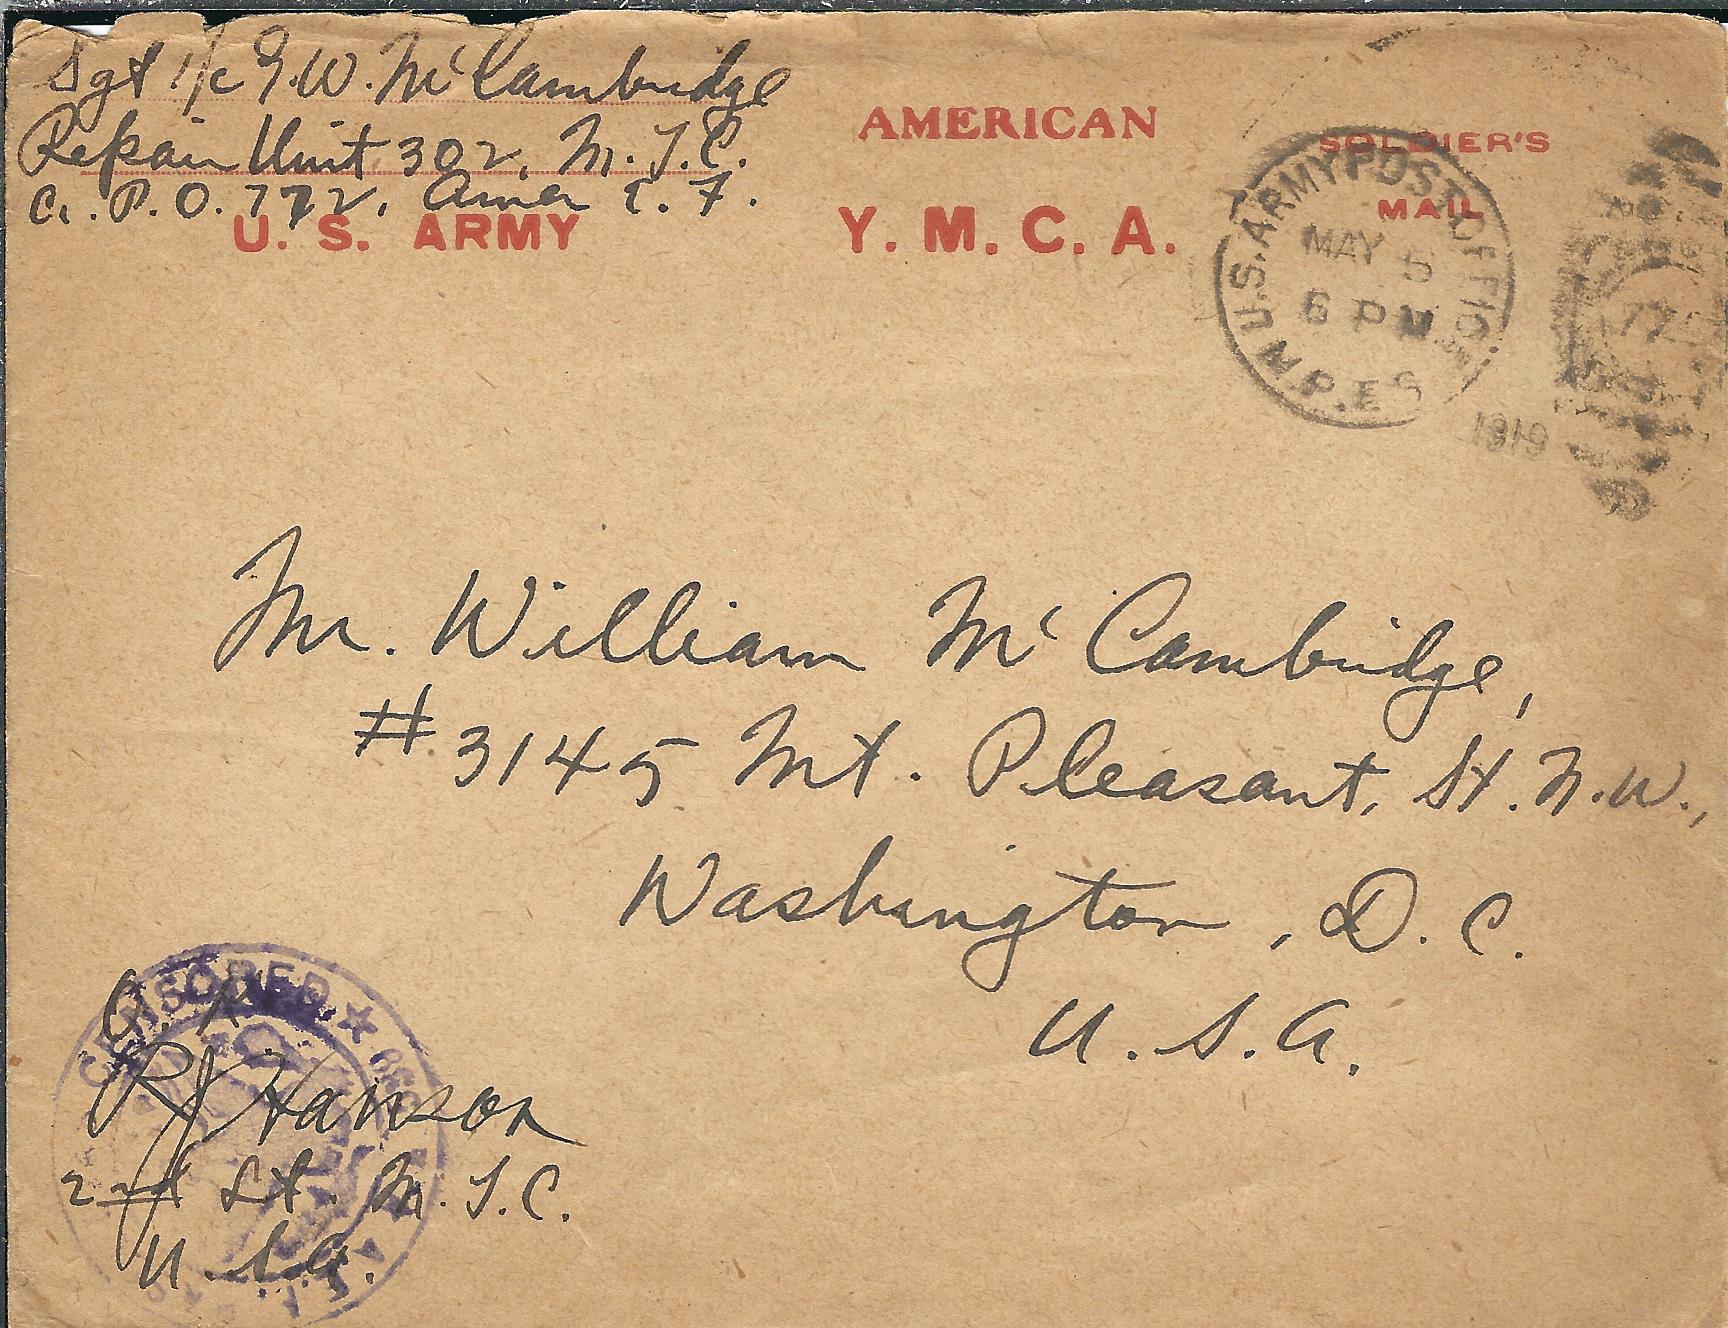 Sgt 1/c G.W. McCambridge
Repair Unit 302, M.T.C.
A.P.O. 772, Amer E.F.
U. S. ARMY
AMERICAN
Y. M. C. A.
SOLDIER'S
MAIL
U.S. ARMY POST OFFICE
MAY 5
6 PM
M.P.E.S
1919
Mr. William McCambridge,
# 3145 Mt. Pleasant, St. N.W.,
Washington, D.C.
U.S.A.
CENSORED
O.K.
RJ Hanson
2nd Lt. M.T.C.
U.S.A.